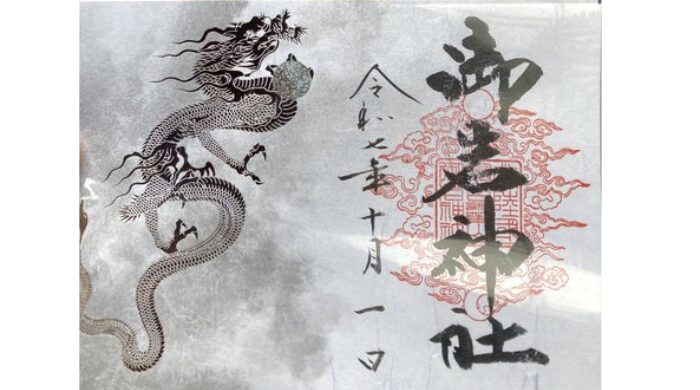 御岩神社
令和七年十月一日